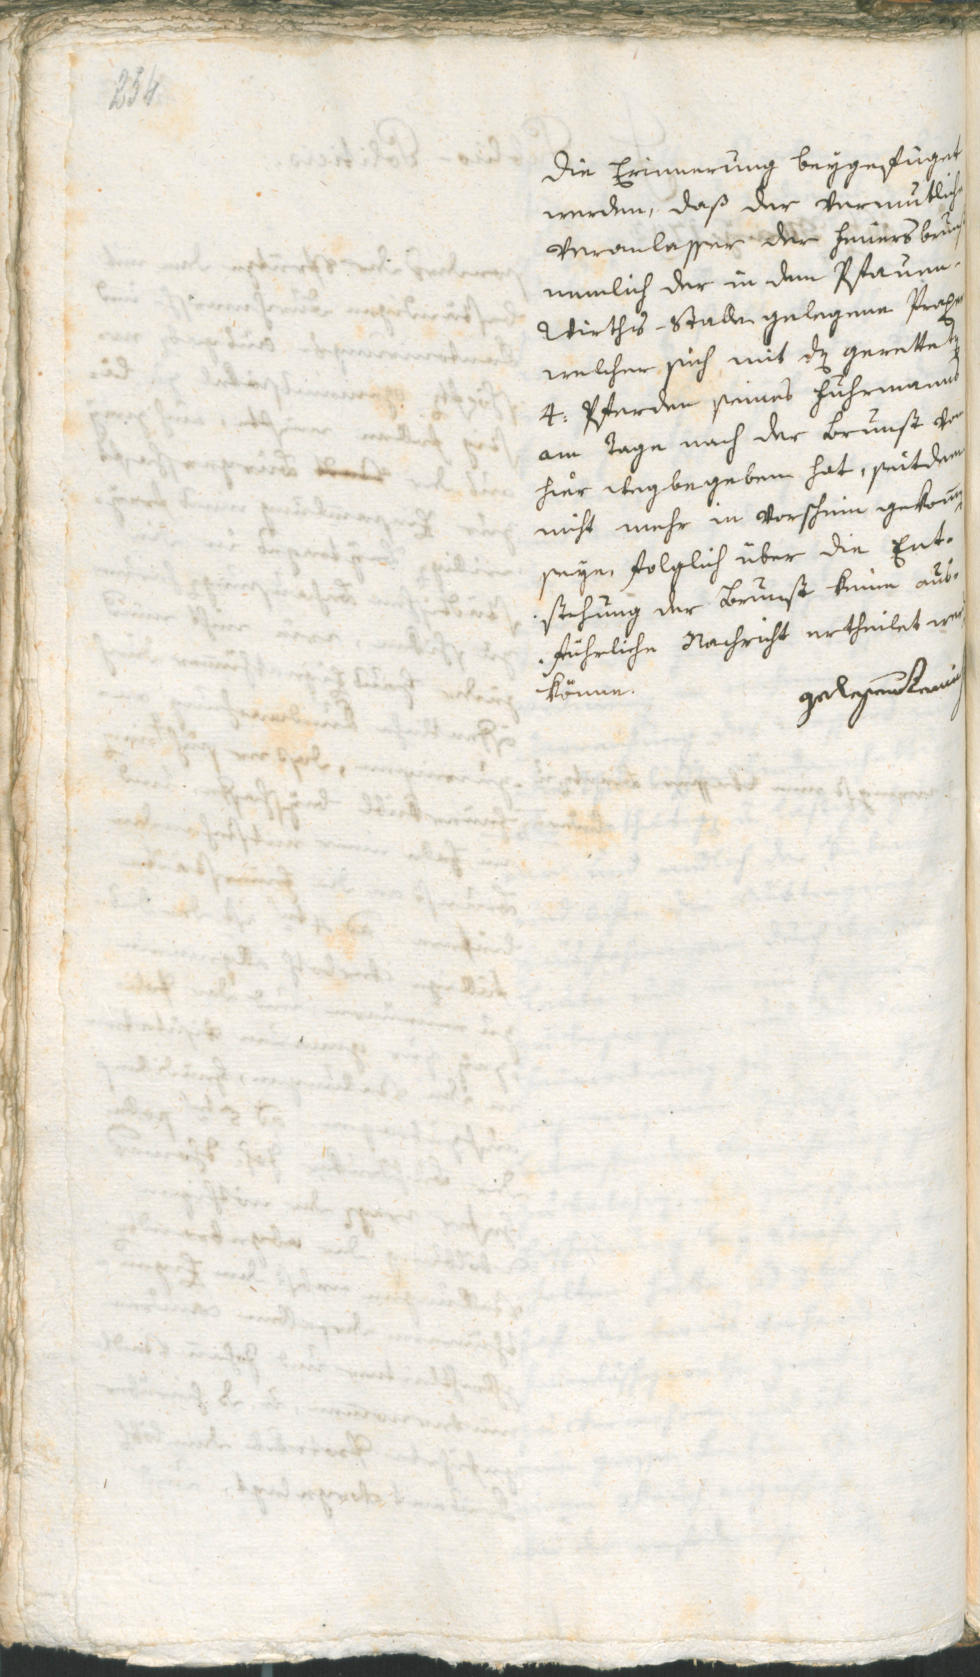 234
die Erinnerung beygefüget
werden, daß der vermutlich
Veranlasser der Feuersbrunst
nemlich der in dem Pfauen-
Wirths-Stalle gelegene
welcher sich mit den geretteten
4: Pferden seines Fuhrmanns
am Tage nach der Brunst von
hier wegbegeben hat, seitdem
nicht mehr in Vorschein gekomm
seye, folglich über die Ent-
stehung der Brunst keine aus-
führliche Nachricht ertheilet werd
könne.